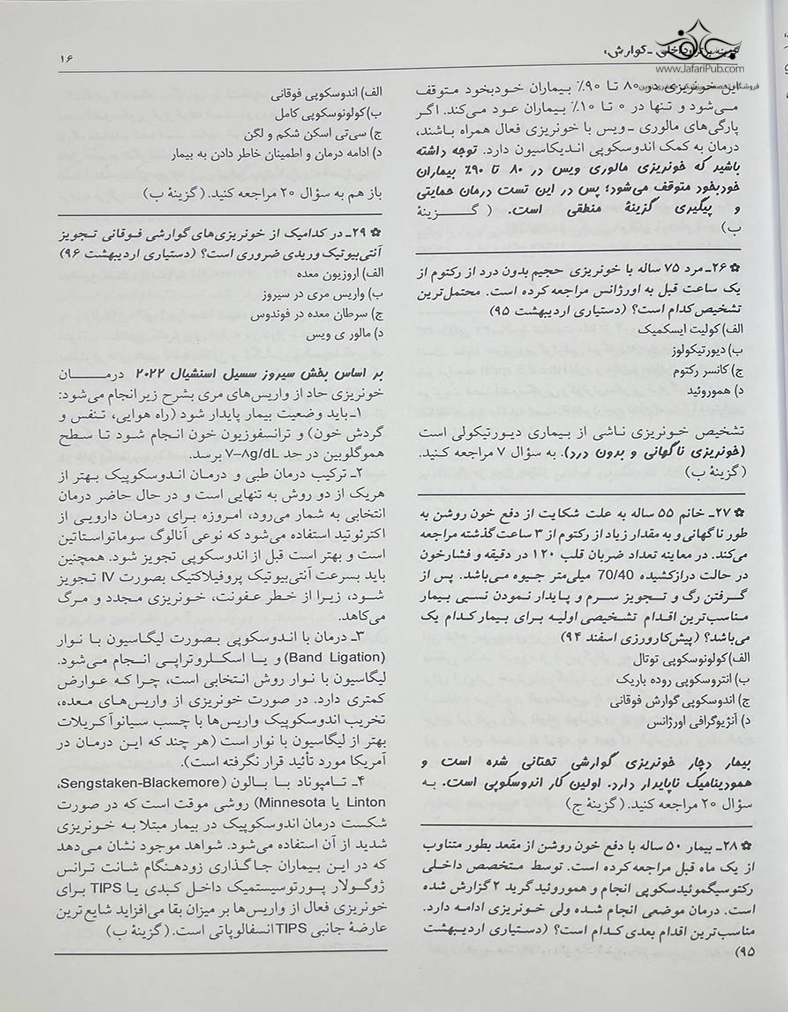 گزینه برتر داخلی - گوارش،
۱۶
www.JafariPub.com
این خونریزی در ۸۰ تا ۹۰٪ بیماران خودبخود متوقف
می‌شود و تنها در ۰ تا ۱۰٪ بیماران عود می‌کند. اگر
پارگی‌های مالوری - ویس با خونریزی فعال همراه باشند،
درمان به کمک اندوسکوپی اندیکاسیون دارد. توجه داشته
باشید که خونریزی مالوری ویس در ۸۰ تا ۹۰٪ بیماران
خودبخود متوقف می‌شود؛ پس در این تست درمان حمایتی
و پیگیری گزینهٔ منطقی است. ( گزینهٔ
ب)
✿ ۲۶- مرد ۷۵ ساله با خونریزی حجیم بدون درد از رکتوم از
یک ساعت قبل به اورژانس مراجعه کرده است. محتمل‌ترین
تشخیص کدام است؟ (دستیاری اردیبهشت ۹۵)
الف) کولیت ایسکمیک
ب) دیورتیکولوز
ج) کانسر رکتوم
د) هموروئید
تشخیص خونریزی ناشی از بیماری دیورتیکولی است
(خونریزی ناگهانی و بدون درد). به سؤال ۷ مراجعه کنید.
(گزینهٔ ب)
✿ ۲۷- خانم ۵۵ ساله به علت شکایت از دفع خون روشن به
طور ناگهانی و به مقدار زیاد از رکتوم از ۳ ساعت گذشته مراجعه
می‌کند. در معاینه تعداد ضربان قلب ۱۲۰ در دقیقه و فشارخون
در حالت درازکشیده 70/40 میلی‌متر جیوه می‌باشد. پس از
گرفتن رگ و تجویز سرم و پایدار نمودن نسبی بیمار
مناسب‌ترین اقدام تشخیصی اولیه برای بیمار کدام یک
می‌باشد؟ (پیش‌کارورزی اسفند ۹۴)
الف) کولونوسکوپی توتال
ب) انتروسکوپی روده باریک
ج) اندوسکوپی گوارش فوقانی
د) آنژیوگرافی اورژانس
بیمار دچار خونریزی گوارشی تحتانی شده است و
همودینامیک ناپایدار دارد. اولین کار اندوسکوپی است. به
سؤال ۲۰ مراجعه کنید. (گزینهٔ ج)
✿ ۲۸- بیمار ۵۰ ساله با دفع خون روشن از مقعد بطور متناوب
از یک ماه قبل مراجعه کرده است. توسط متخصص داخلی
رکتوسیگموئیدسکوپی انجام و هموروئید گرید ۲ گزارش شده
است. درمان موضعی انجام شده ولی خونریزی ادامه دارد.
مناسب‌ترین اقدام بعدی کدام است؟ (دستیاری اردیبهشت
۹۵)
الف) اندوسکوپی فوقانی
ب) کولونوسکوپی کامل
ج) سی‌تی اسکن شکم و لگن
د) ادامه درمان و اطمینان خاطر دادن به بیمار
باز هم به سؤال ۲۰ مراجعه کنید. (گزینهٔ ب)
✿ ۲۹- در کدامیک از خونریزی‌های گوارشی فوقانی تجویز
آنتی‌بیوتیک وریدی ضروری است؟ (دستیاری اردیبهشت ۹۶)
الف) اروزیون معده
ب) واریس مری در سیروز
ج) سرطان معده در فوندوس
د) مالوری ویس
بر اساس بخش سیروز سسیل اسنشیال ۲۰۲۲ درمان
خونریزی حاد از واریس‌های مری بشرح زیر انجام می‌شود:
۱- باید وضعیت بیمار پایدار شود (راه هوایی، تنفس و
گردش خون) و ترانسفوزیون خون انجام شود تا سطح
هموگلوبین در حد ۷-۸g/dL برسد.
۲- ترکیب درمان طبی و درمان اندوسکوپیک بهتر از
هریک از دو روش به تنهایی است و در حال حاضر درمان
انتخابی به شمار می‌رود، امروزه برای درمان دارویی از
اکترئوتید استفاده می‌شود که نوعی آنالوگ سوماتواستاتین
است و بهتر است قبل از اندوسکوپی تجویز شود. همچنین
باید بسرعت آنتی‌بیوتیک پروفیلاکتیک بصورت IV تجویز
شود، زیرا از خطر عفونت، خونریزی مجدد و مرگ
می‌کاهد.
۳- درمان با اندوسکوپی بصورت لیگاسیون با نوار
(Band Ligation) و یا اسکلروتراپی انجام می‌شود.
لیگاسیون با نوار روش انتخابی است، چرا که عوارض
کمتری دارد. در صورت خونریزی از واریس‌های معده،
تخریب اندوسکوپیک واریس‌ها با چسب سیانوآکریلات
بهتر از لیگاسیون با نوار است (هر چند که این درمان در
آمریکا مورد تأئید قرار نگرفته است).
۴- تامپوناد با بالون (Sengstaken-Blackemore،
Linton یا Minnesota) روشی موقت است که در صورت
شکست درمان اندوسکوپیک در بیمار مبتلا به خونریزی
شدید از آن استفاده می‌شود. شواهد موجود نشان می‌دهد
که در این بیماران جاگذاری زودهنگام شانت ترانس
ژوگولار پورتوسیستمیک داخل کبدی یا TIPS برای
خونریزی فعال از واریس‌ها بر میزان بقا می‌افزاید شایع‌ترین
عارضهٔ جانبی TIPS انسفالوپاتی است. (گزینهٔ ب)